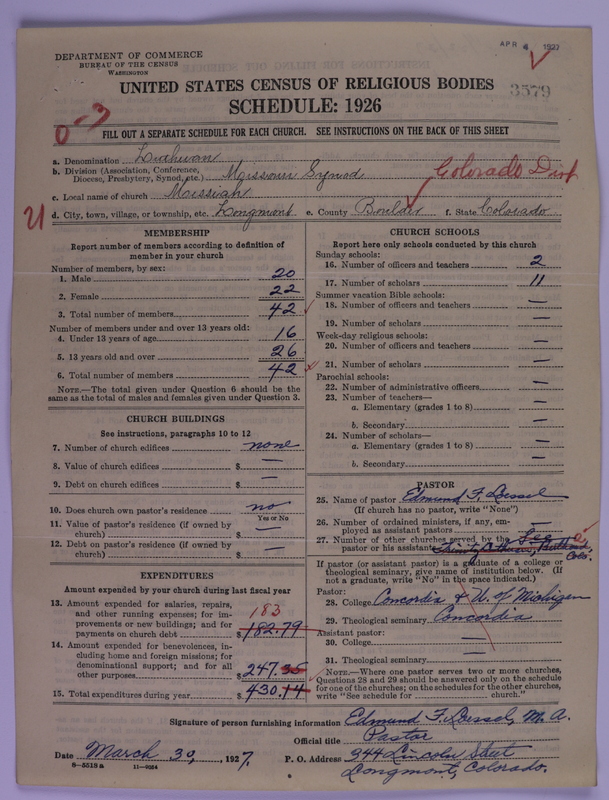 DEPARTMENT OF COMMERCE
BUREAU OF THE CENSUS
WASHINGTON
APR 4 1927
UNITED STATES CENSUS OF RELIGIOUS BODIES
SCHEDULE: 1926
3579
0-3
FILL OUT A SEPARATE SCHEDULE FOR EACH CHURCH. SEE INSTRUCTIONS ON THE BACK OF THIS SHEET
a. Denomination Lutheran
b. Division (Association, Conference, Diocese, Presbytery, Synod, etc.) Missouri Synod Colorado Dist
c. Local name of church Messiah
d. City, town, village, or township, etc. Longmont e. County Boulder f. State Colorado
MEMBERSHIP
Report number of members according to definition of
member in your church
Number of members by sex:
1. Male 20
2. Female 22
3. Total number of members 42
Number of members under and over 13 years old:
4. Under 13 years of age 16
5. 13 years old and over 26
6. Total number of members 42
NOTE.—The total given under Question 6 should be the
same as the total of males and females given under Question 3.
CHURCH BUILDINGS
See instructions, paragraphs 10 to 12
7. Number of church edifices none
8. Value of church edifices $ —
9. Debt on church edifices $ —
10. Does church own pastor's residence no
Yes or No
11. Value of pastor's residence (if owned by
church) $ —
12. Debt on pastor's residence (if owned by
church) $ —
EXPENDITURES
Amount expended by your church during last fiscal year
13. Amount expended for salaries, repairs,
and other running expenses; for im-
provements or new buildings; and for
payments on church debt $ 182.79
183
14. Amount expended for benevolences, in-
cluding home and foreign missions; for
denominational support; and for all
other purposes $ 247.35
15. Total expenditures during year $ 430.14
CHURCH SCHOOLS
Report here only schools conducted by this church
Sunday schools:
16. Number of officers and teachers 2
17. Number of scholars 11
Summer vacation Bible schools:
18. Number of officers and teachers —
19. Number of scholars —
Week-day religious schools:
20. Number of officers and teachers —
21. Number of scholars —
Parochial schools:
22. Number of administrative officers —
23. Number of teachers—
a. Elementary (grades 1 to 8) —
b. Secondary —
24. Number of scholars—
a. Elementary (grades 1 to 8) —
b. Secondary —
PASTOR
25. Name of pastor Edmund F.
(If church has no pastor, write "None")
26. Number of ordained ministers, if any, em-
ployed as assistant pastors —
27. Number of other churches served by the
pastor or his assistant Trinity Colo.
If pastor (or assistant pastor) is a graduate of a college or
theological seminary, give name of institution below. (If
not a graduate, write "No" in the space indicated.)
Pastor:
28. College Concordia & U. of Michigan
29. Theological seminary Concordia
Assistant pastor:
30. College —
31. Theological seminary —
NOTE.—Where one pastor serves two or more churches,
Questions 28 and 29 should be answered only on the schedule
for one of the churches; on the schedules for the other churches,
write "See schedule for church."
Signature of person furnishing information Edmund F. M. A.
Official title Pastor
Date March 30, 1927. P. O. Address 944 Lincoln Street
Longmont, Colorado.
8-5518 a 11-9054